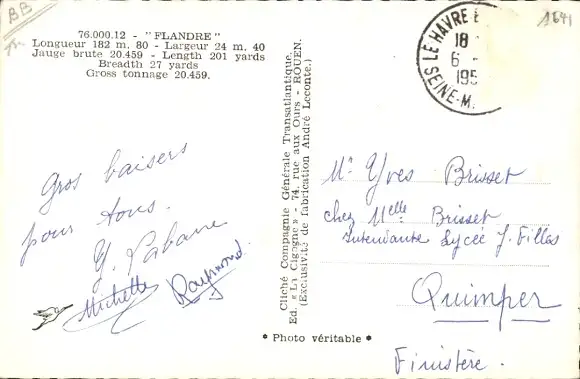 BB
1641
76.000.12 - "FLANDRE"
Longueur 182 m. 80 - Largeur 24 m. 40
Jauge brute 20.459 - Length 201 yards
Breadth 27 yards
Gross tonnage 20.459.
LE HAVRE
18
6 -
195
SEINE-M.
Gros baisers
pour tous.
Michelle
Raymond
Cliché Compagnie Générale Transatlantique.
Ed. "La Cigogne" - 74, rue aux Ours - ROUEN.
(Exclusivité de fabrication André Leconte.)
Mr Yves Brisset
chez Melle Brisset
Intendante Lycée J. Filles
Quimper
Finistère.
* Photo véritable *